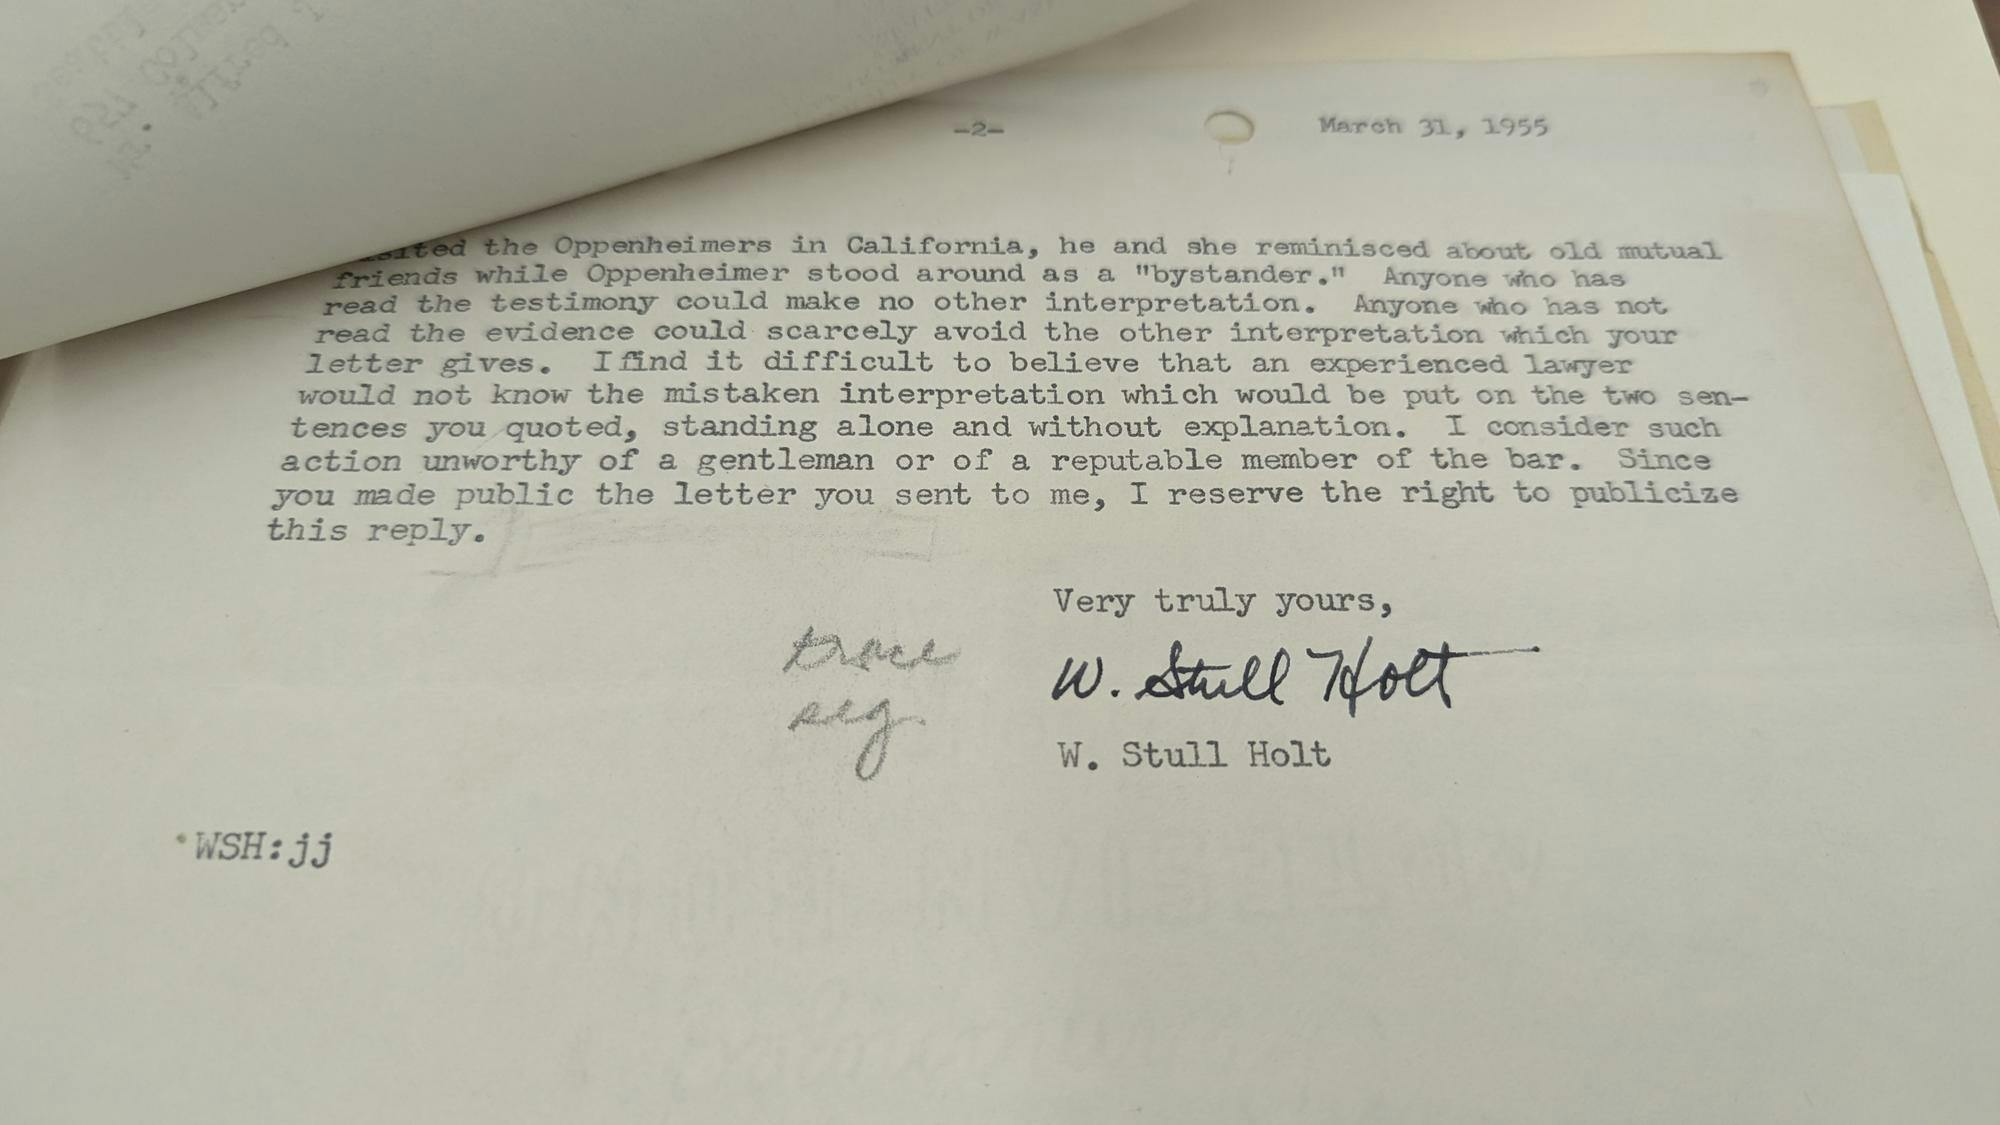 -2-
March 31, 1955
the Oppenheimers in California, he and she reminisced about old mutual
friends while Oppenheimer stood around as a "bystander." Anyone who has
read the testimony could make no other interpretation. Anyone who has not
read the evidence could scarcely avoid the other interpretation which your
letter gives. I find it difficult to believe that an experienced lawyer
would not know the mistaken interpretation which would be put on the two sen-
tences you quoted, standing alone and without explanation. I consider such
action unworthy of a gentleman or of a reputable member of the bar. Since
you made public the letter you sent to me, I reserve the right to publicize
this reply.
Very truly yours,
W. Stull Holt
W. Stull Holt
WSH:jj